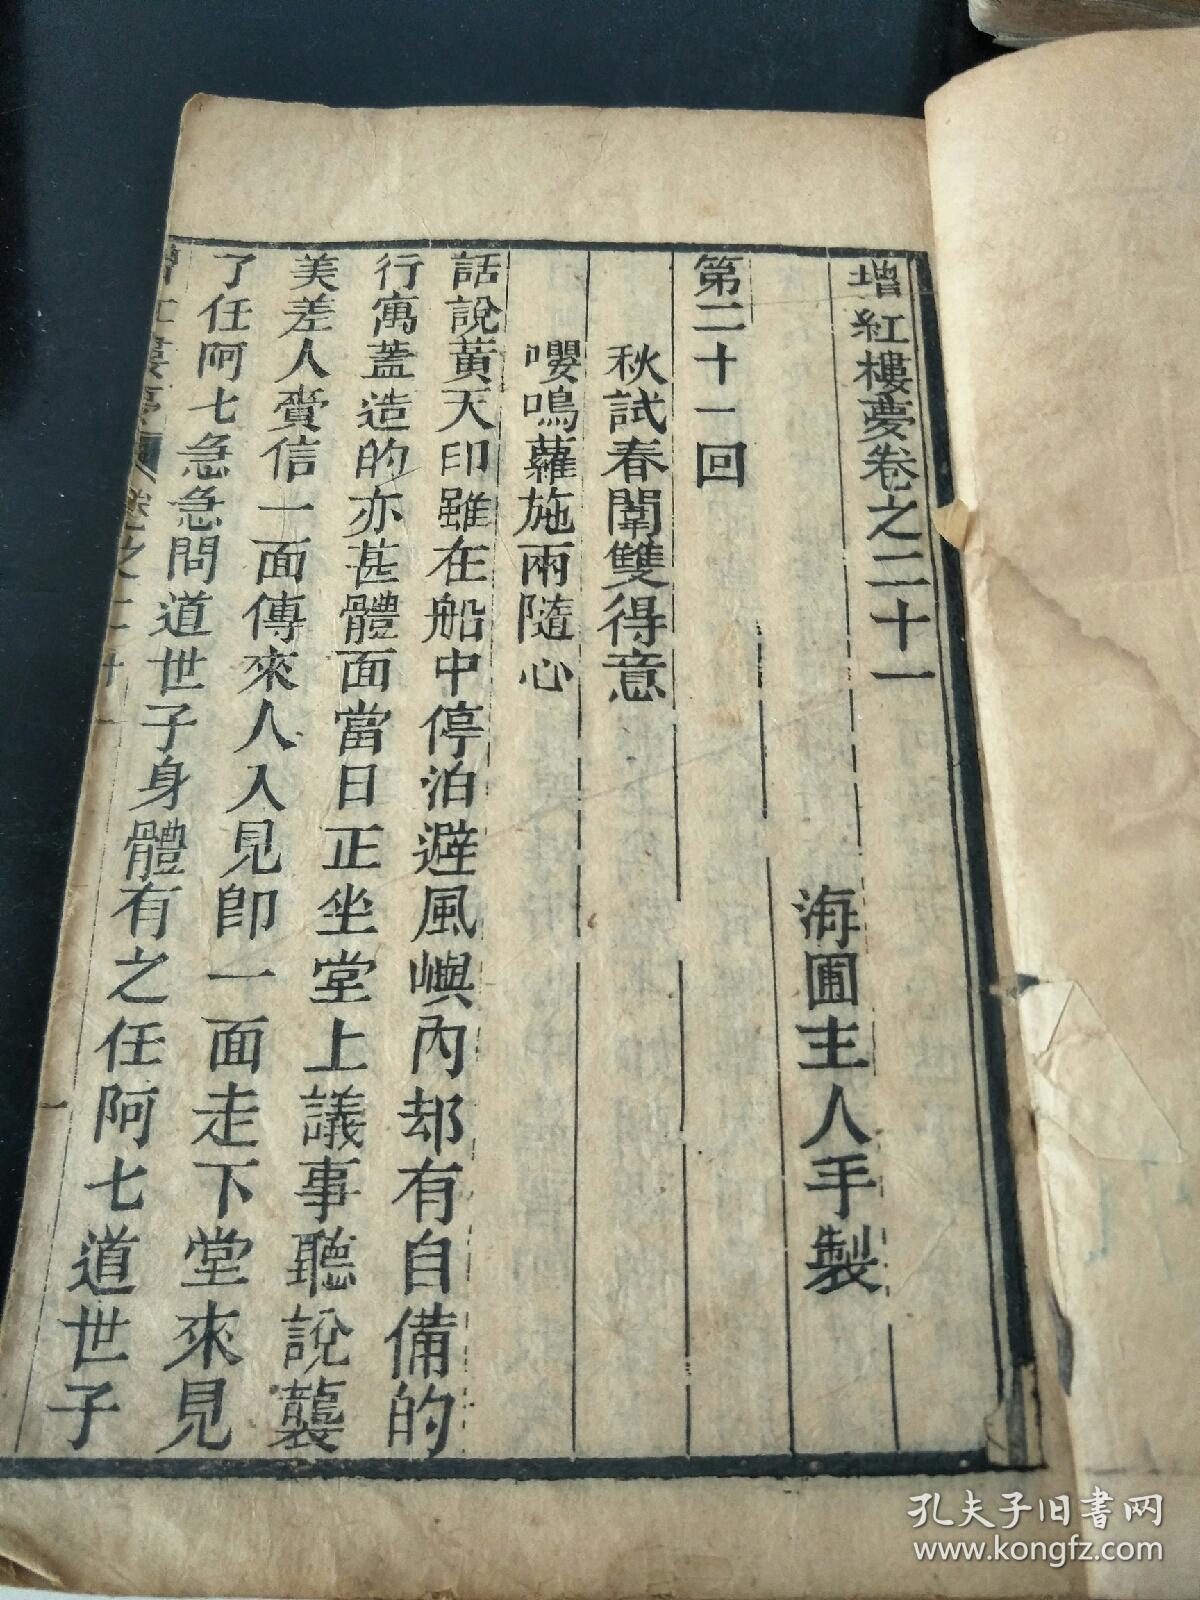 增紅樓夢卷之二十一
海圃主人手製
第二十一回
秋試春闈雙得意
嚶鳴蘿施兩隨心
話說黃天印雖在船中停泊避風嶼內却有自備的
行寓蓋造的亦甚體面當日正坐堂上議事聽說襲
美差人賫信一面傳來人入見即一面走下堂來見
了任阿七急急問道世子身體有之任阿七道世子
樓夢
卷之二十一
一
孔夫子旧书网
www.kongfz.com